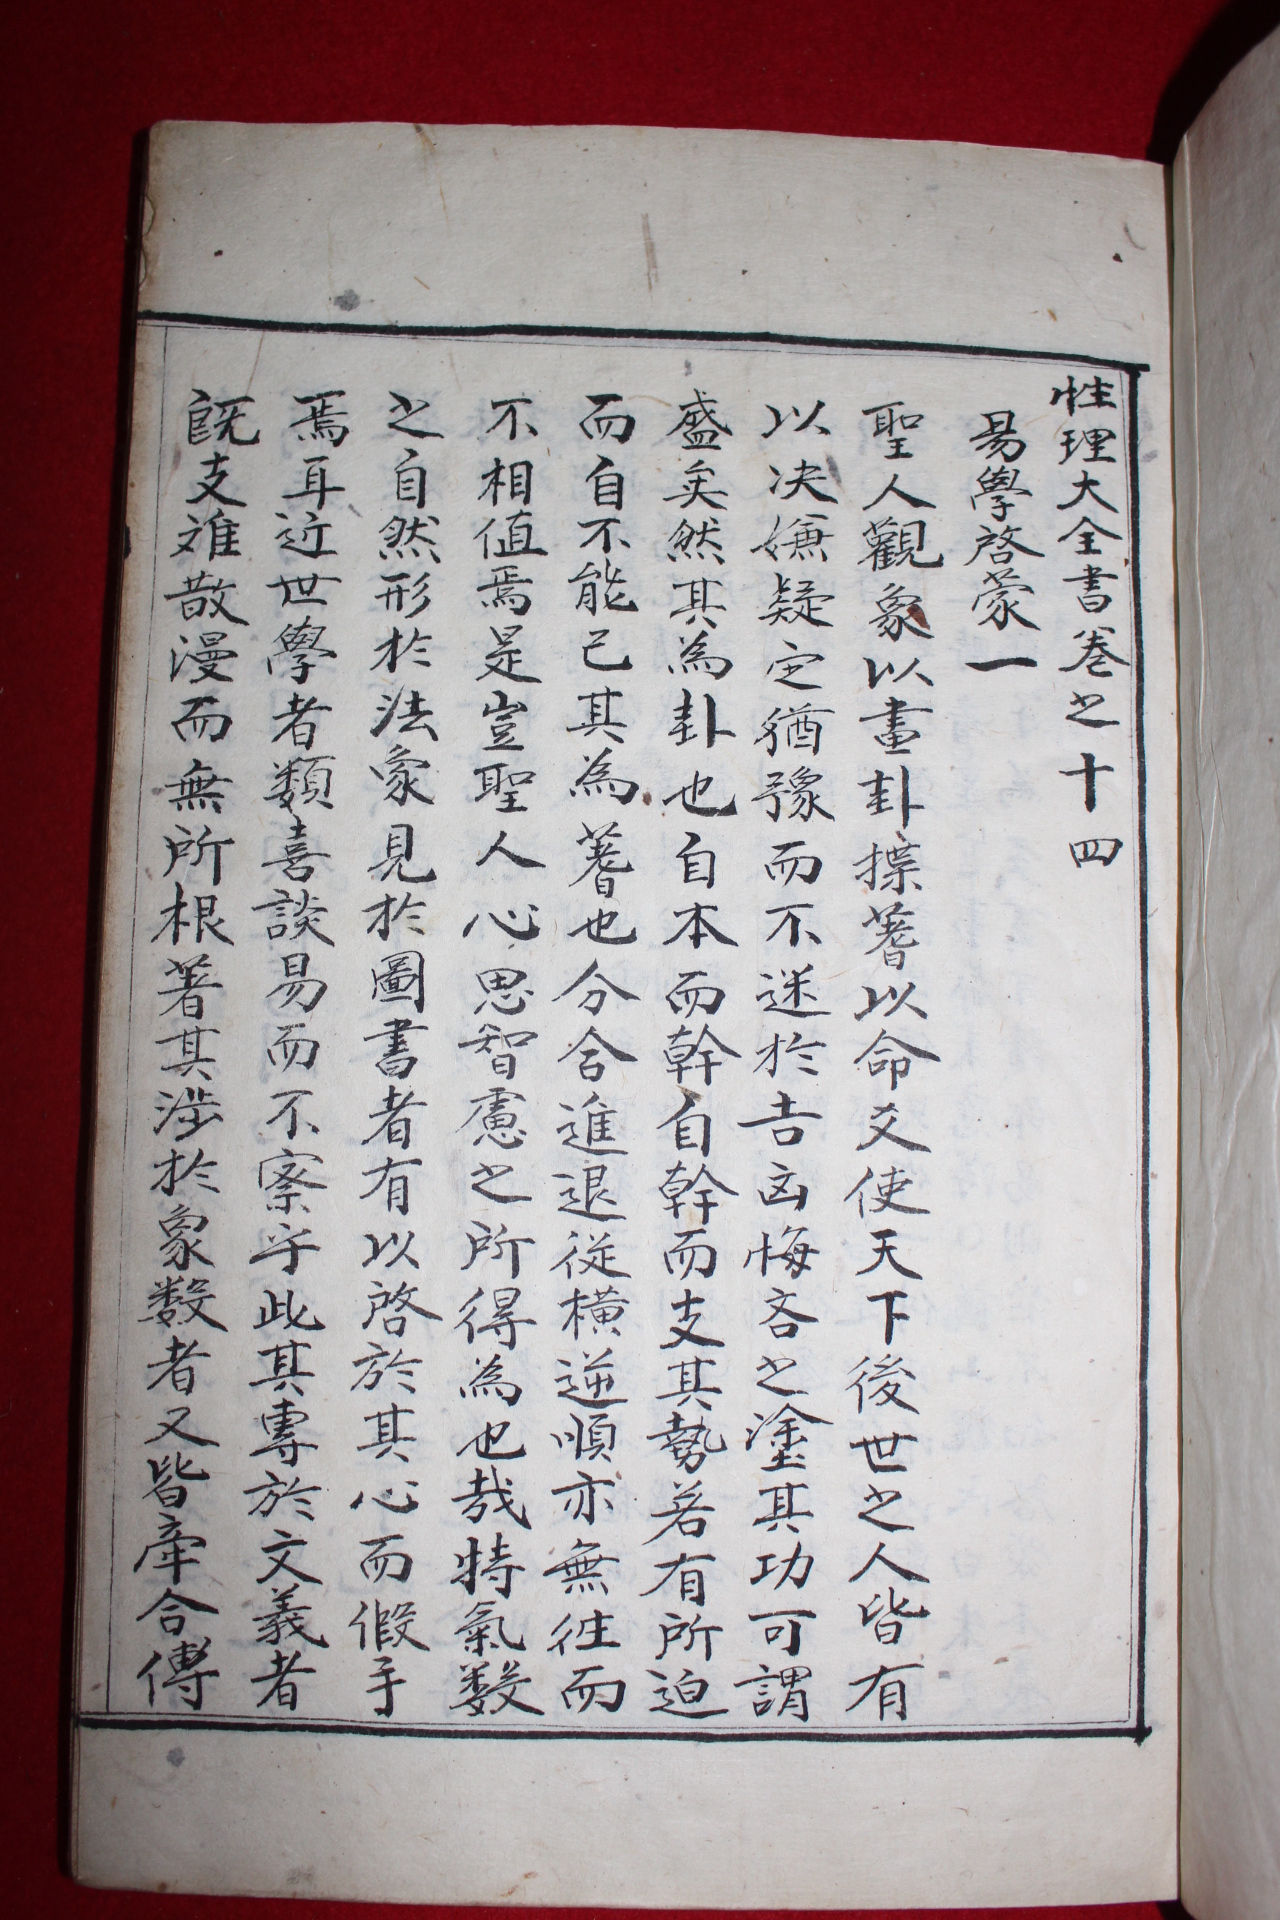 性理大全書卷之十四
易學啓蒙一
聖人觀象以畫卦揲蓍以命爻使天下後世之人皆有
以決嫌疑定猶豫而不迷於吉凶悔吝之塗其功可謂
盛矣然其為卦也自本而幹自幹而支其勢若有所迫
而自不能已其為蓍也分合進退從橫逆順亦無往而
不相值焉是豈聖人心思智慮之所得為也哉特氣數
之自然形於法象見於圖書者有以啓於其心而假手
焉耳近世學者類喜談易而不察乎此其專於文義者
旣支離散漫而無所根著其涉於象數者又皆牽合傅